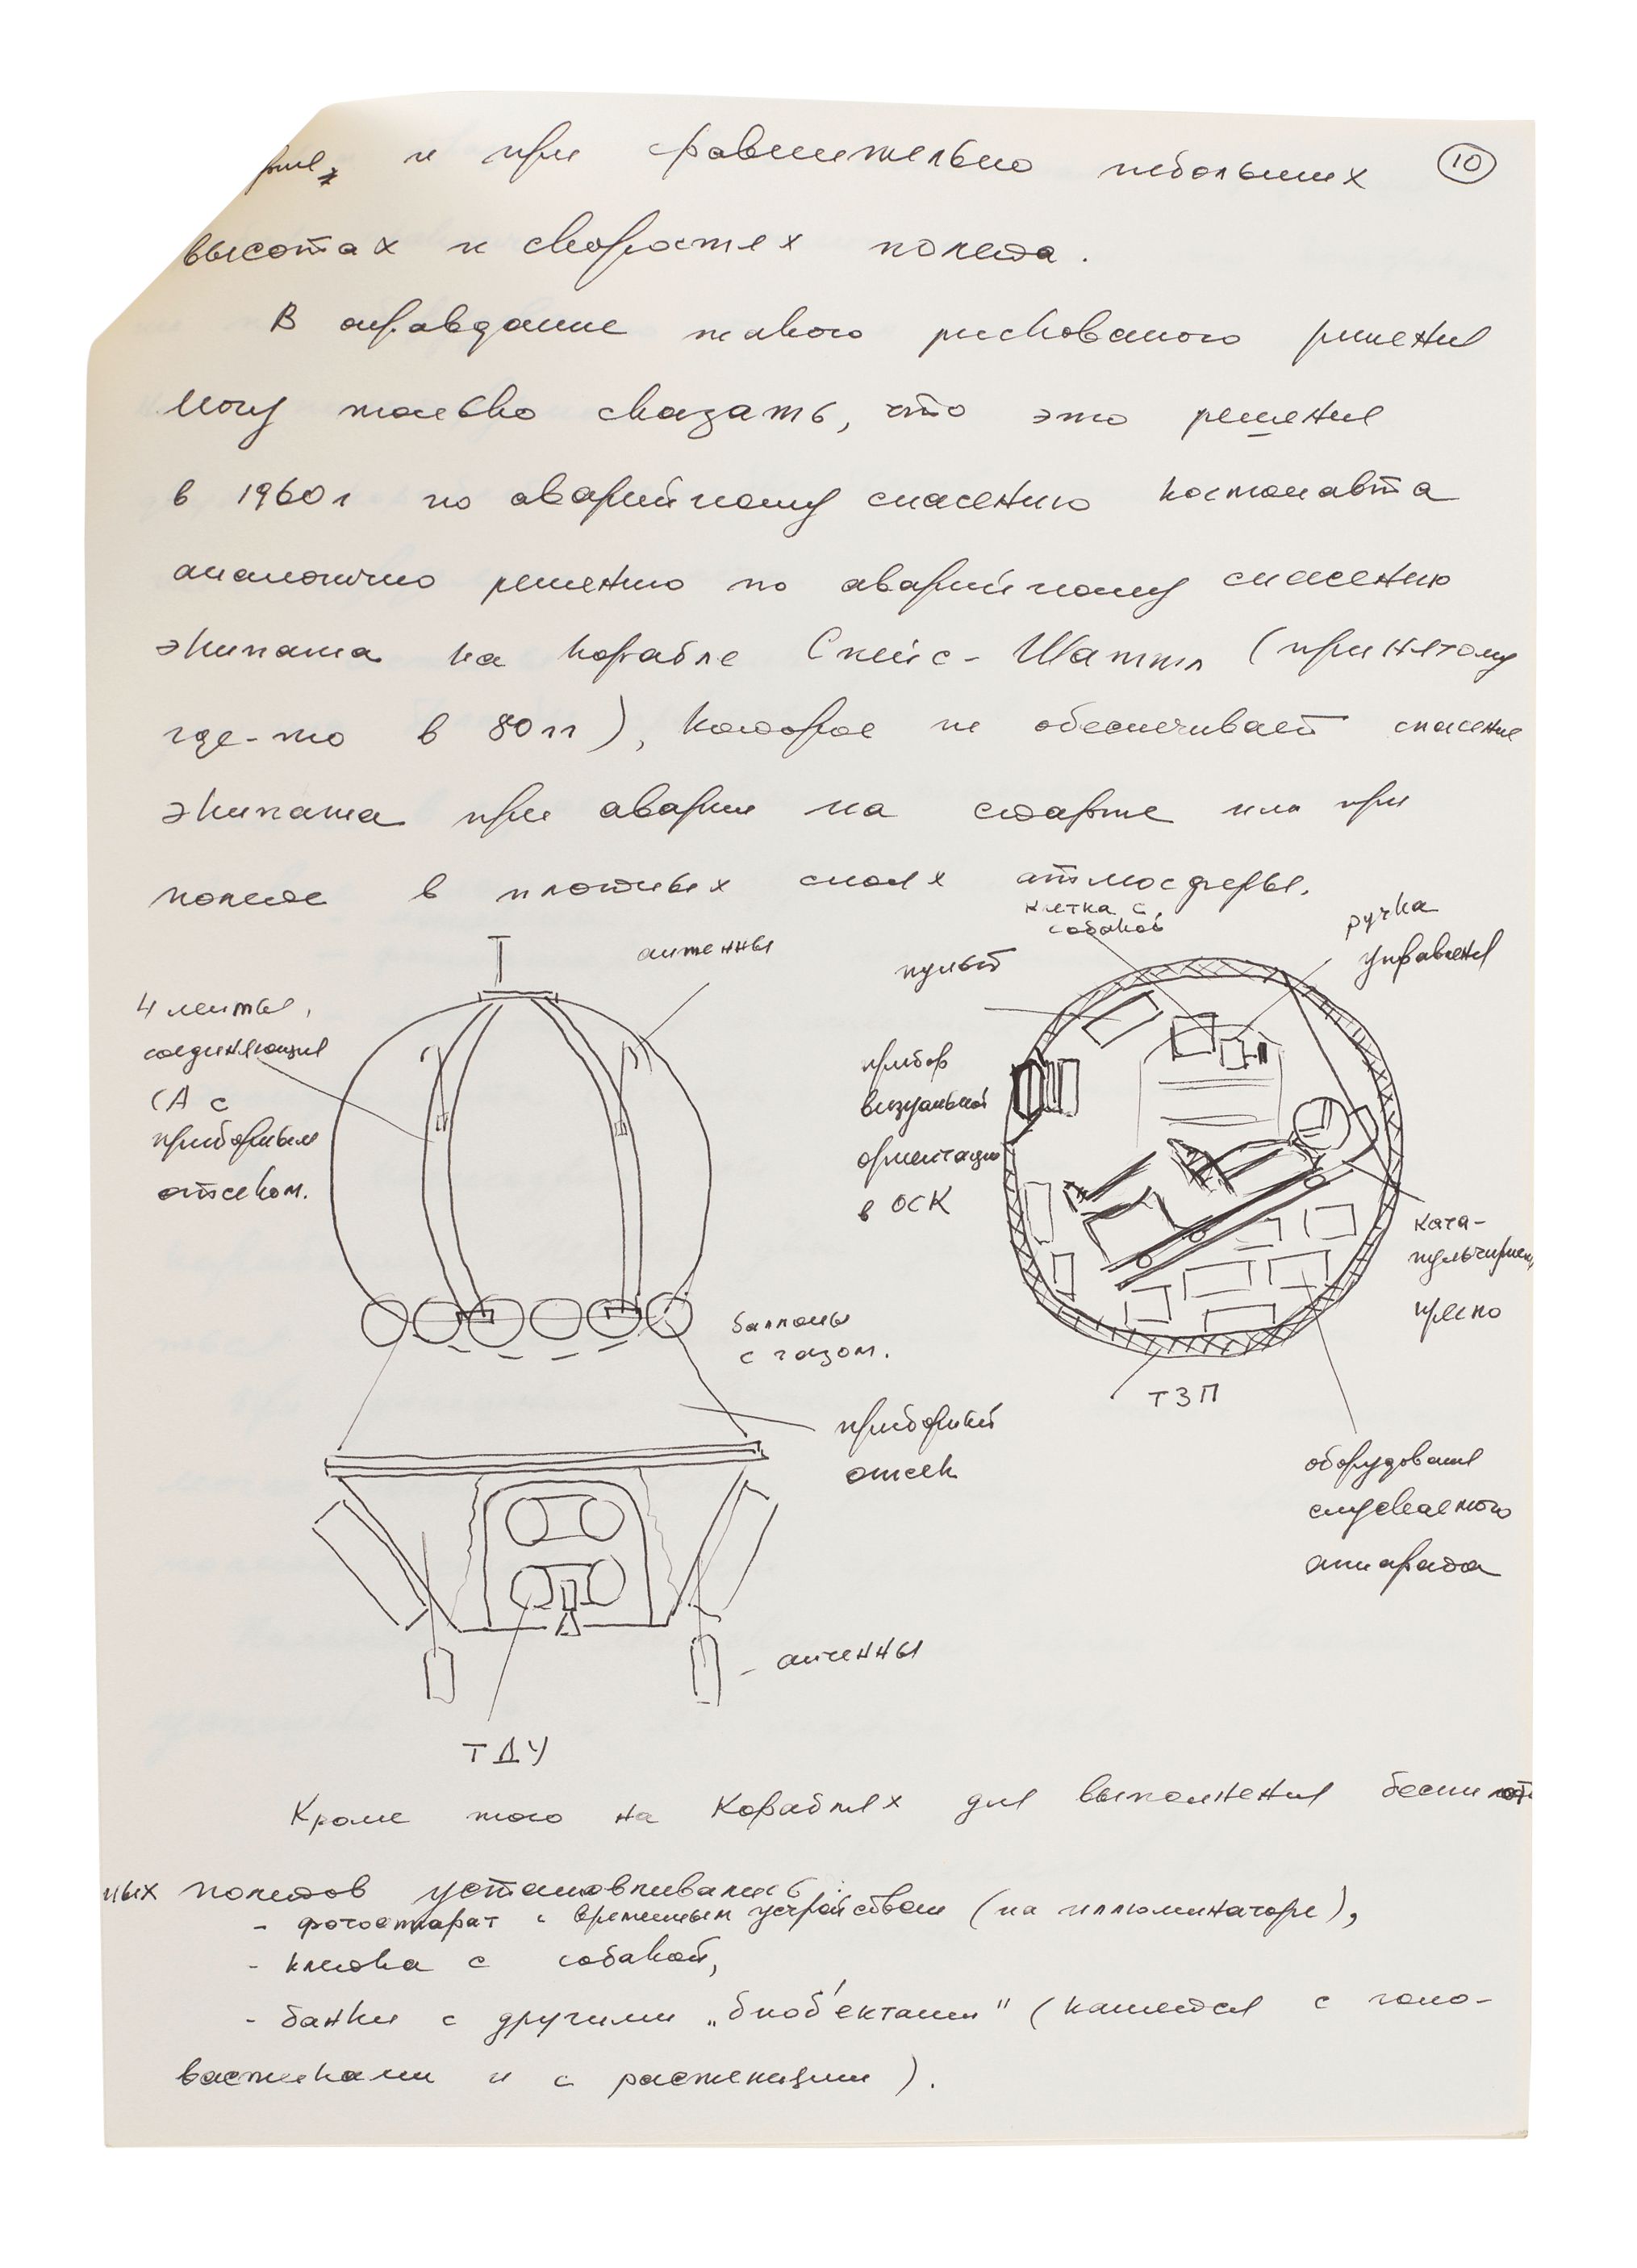 и при сравнительно небольших
10
высотах и скоростях полета.
В оправдание такого рискованого решения
могу только сказать, что это решение
в 1960г по аварийному спасению космонавта
аналогично решению по аварийному спасению
экипажа на корабле Спейс-Шаттл (принятому
где-то в 80гг), которое не обеспечивает спасение
экипажа при аварии на старте или при
полете в плотных слоях атмосферы.
клетка с
собакой
ручка
управления
антенны
пульт
4 ленты,
соединяющие
СА с
приборным
отсеком.
прибор
визуальной
ориентации
в ОСК
ката-
пультируем.
кресло
баллоны
с газом.
ТЗП
приборный
отсек
оборудование
спускаемого
аппарата
антенны
ТДУ
Кроме того на кораблях для выполнения беспилот
ных полетов устанавливались:
- фотоаппарат с временным устройством (на иллюминаторе),
- клетка с собакой,
- банки с другими „биоб'ектами" (кажется с голо-
вастиками и с растениями).